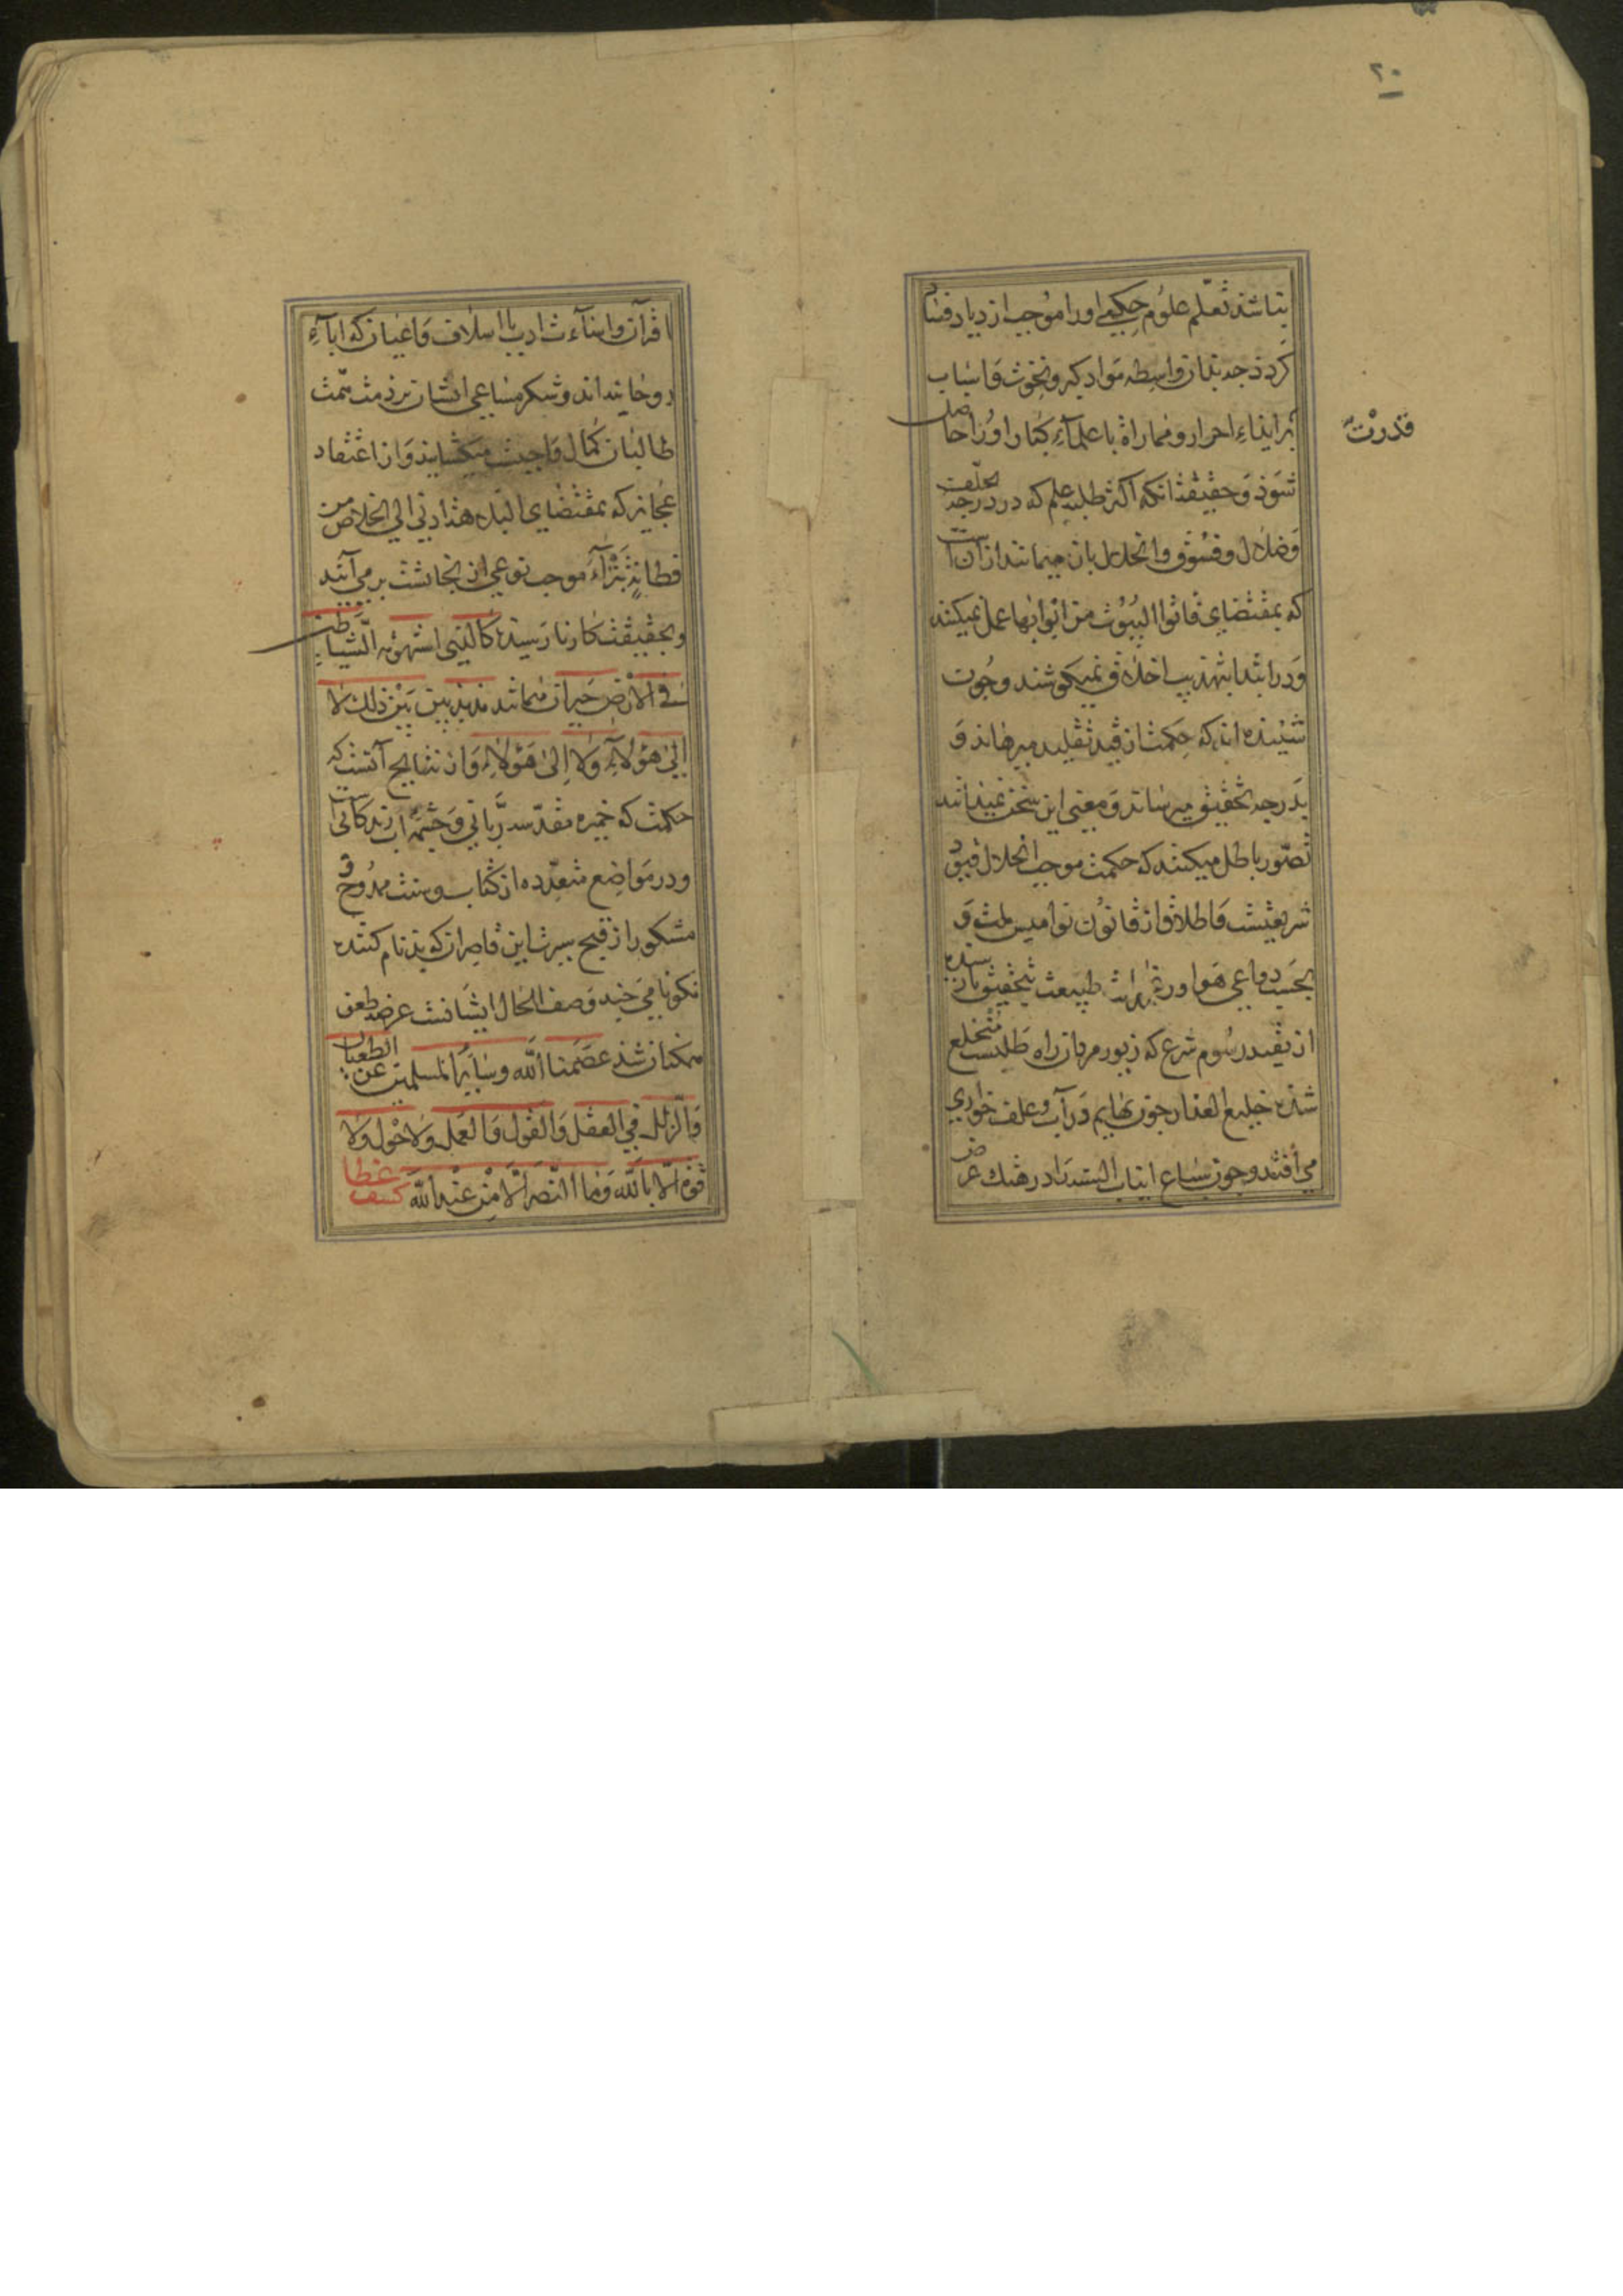 ٢٠
نباشد تعلّم علوم حکمی او را موجب ازدیاد فساد
کردد جه بدان واسطه مواد کبر و نخوت و اسباب
قدرت
بر ایذاء احرار و مماراة با علماء کبار او را حاصل
شوذ و حقیقة انکه اکثر طلبه علم که در درجه
وضلال و فسوق و انحلال بان میمانند از آن است
که بمقتضای فاتوا البیوت من ابوابها عمل نمیکنند
و در ابتدا بتهذیب اخلاق نمیکوشند و جون
شنیده اند که حکمت از قید تقلید میرهاند و
بدرجه تحقیق میرساند و معنی این سخن نمیدانند
تصور باطل میکنند که حکمت موجب انحلال قیود
شریعتست و اطلاق از قانون نوامیس ملت و
بحسب دواعی هوا و طبیعت بتحقیق نارسیده
از تقید رسوم شرع که زیور مردان راه طلبست منخلع
شده خلیع العذار جون بهایم در آب و علف خواری
می افتند و جون سباع انیاب السنه را در هتک عرض
اقران و اساءت ادب با اسلاف و اعیان که اباء
روحانیند اند و شکر مساعی ایشان بر ذمت همت
طالبان کمال واجبست میکشایند و از اعتقاد
عجایز که بمقتضای البله هذا ادنی الی الخلاص من
فطانة بتراء موجب نوعی از نجاتست بر می آیند
و بحقیقت کار نارسیده کالذی استهوته الشیاطین
فی الارض حیران میمانند مذبذبین بین ذلک لا
الی هؤلاء ولا الی هؤلاء و از نتایج آنست که
حکمت که خمیره مقدسه ربانی و جشمه آب زندکانیست
و در مواضع متعدده از کتاب و سنت ممدوح و
مشکور از قبح سیرت این قاصران که بدنام کننده
نکونامی جند وصف الحال ایشانست عرضه طعن
ممکنان شد عصمنا الله و سایر المسلمین عن الطغیان
والزلل فی العقل والقول والعمل ولا حول ولا
قوة الا بالله وما النصر الا من عند الله کشف غطا